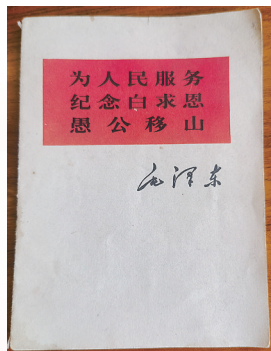 为人民服务
纪念白求恩
愚公移山
毛泽东